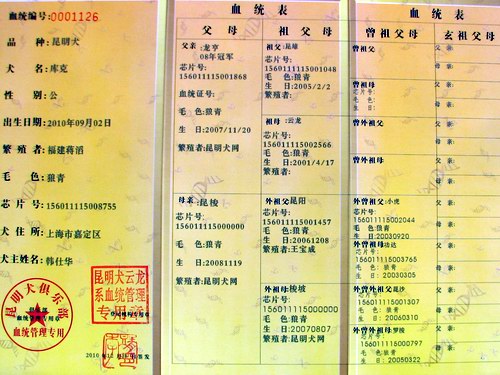 血统编号:0001126
品 种:昆明犬
犬 名:库克
性 别:公
出生日期:2010年09月02日
繁殖者:福建蒋滔
毛 色:狼青
芯片号:156011115008755
犬住所:上海市嘉定区
犬主姓名:韩仕华
昆明犬俱乐部
血统管理专用
昆明犬云龙
系血统管理
专用章
血 统 表
父 母
祖 父 母
父亲:龙亨
08年冠军
芯片号:
156011115001868
血统证号:
毛 色:狼青
生 日:2007/11/20
繁殖者:昆明犬网
母亲:昆梭
芯片号:
156011115000000
毛 色:狼青
生 日:20081119
繁殖者:昆明犬网
祖父:昆雄
芯片号:
156011115001048
毛 色:狼青
生 日:2005/2/2
繁殖者:
祖母:云龙
芯片号:
156011115002566
毛 色:狼青
生 日:2001/4/17
繁殖者:
外祖父:昆阳
芯片号:
156011115001457
毛 色:狼青
生 日:20061208
繁殖者:王宝威
外祖母:梭坡
芯片号:
156011115000000
毛 色:狼青
生 日:20070807
繁殖者:昆明犬网
血 统 表
曾祖父母
玄祖父母
曾祖父
曾祖母
芯片号:
毛 色:
生 日:
曾外祖父
曾外祖母
外曾祖父:小虎
芯片号:
156011115002044
毛 色:狼青
生 日:20030920
外曾祖母:
芯片号:
156011115003765
毛 色:狼青
生 日:20030305
外曾外祖父
芯片号:
156011115001307
毛 色:狼青
生 日:20060310
外曾外祖母
芯片号:
156011115000797
毛 色:狼青
生 日:20050322
父亲:
母亲:
父亲:
母亲:
父亲:
母亲:
父亲:
母亲:
父亲:
母亲:
父亲:
母亲:
父亲:
母亲:
父亲:
母亲: